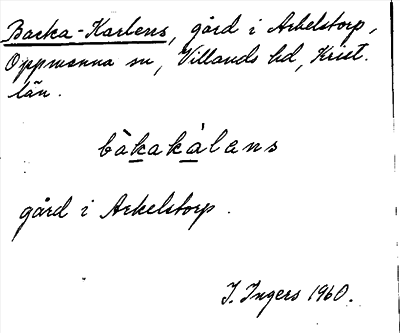 Backa-Karlens, gård i Arkelstorp,
Oppmanna sn, Villands hd, Krist.
län.
bàkakàlens
gård i Arkelstorp.
I. Ingers 1960.